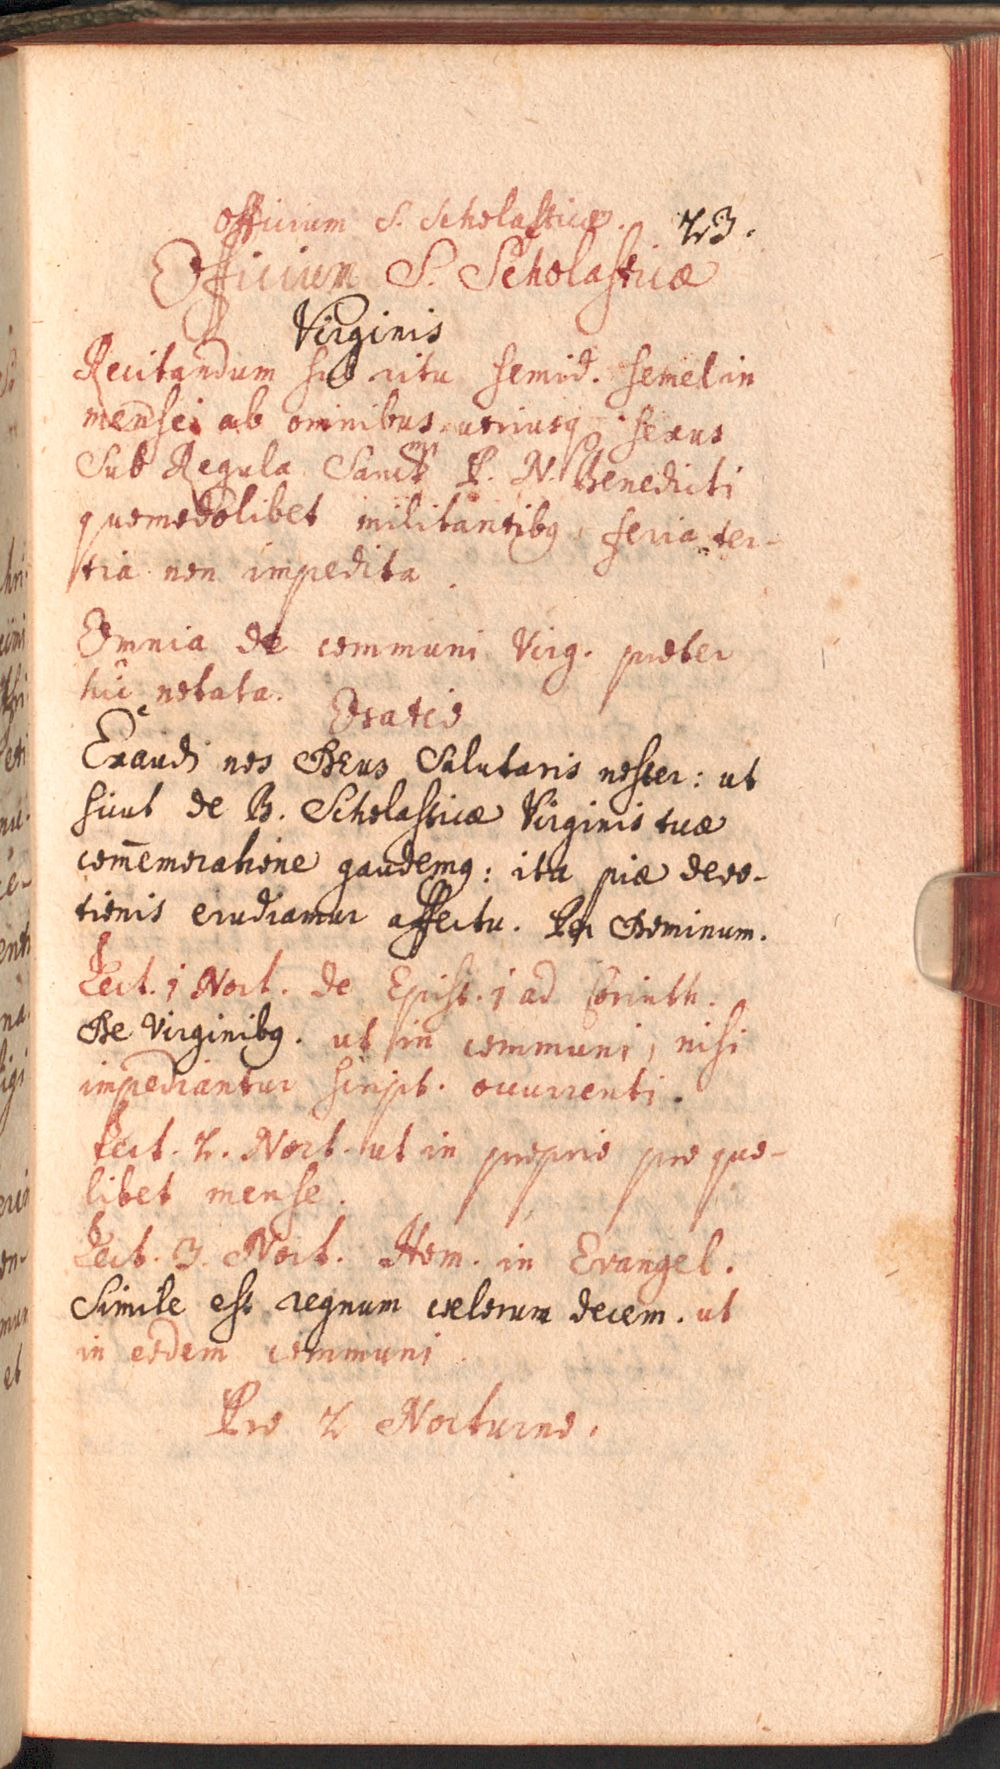 Officium S. Scholasticæ. 23.
Officium S. Scholasticæ
Virginis
Recitandum sub ritu semid. semel in
mense ab omnibus utriusq sexus
Sub Regula P. N. Benedicti
quomodolibet militantibq feria ter-
tia non impedita.
Omnia de communi Virg. præter
hic notata.
Oratio
Exaudi nos DEus Salutaris noster: ut
sicut de B. Scholasticæ Virginis tuæ
com̄emoratione gaudemq: ita piæ devo-
tionis erudiamur affectu. Per Dominum.
Lect. 1 Noct. de Epist. 1 ad Corinth.
De Virginibq. ut in communi, nisi
impediantur script. occurrenti.
Lect. 2. Noct. ut in proprio pro quo-
libet mense.
Lect. 3. Noct. Hom. in Evangel.
Simile est regnum cælorum decem. ut
in eodem communi.
Pro 2 Nocturno.